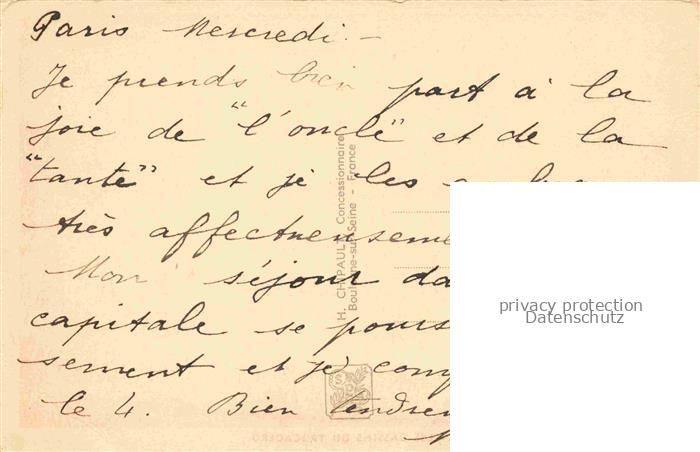 Paris Mercredi. -
Je prends bien part à la
joie de "l'oncle" et de la
"tante" et je les
très affectueuseme
Mon séjour da
capitale se pours
sement et je comp
le 4. Bien tendrem
H. CHIPAULT Concessionnaire
Boulogne-sur-Seine - France
privacy protection
Datenschutz
BASSINS DU TROCADERO